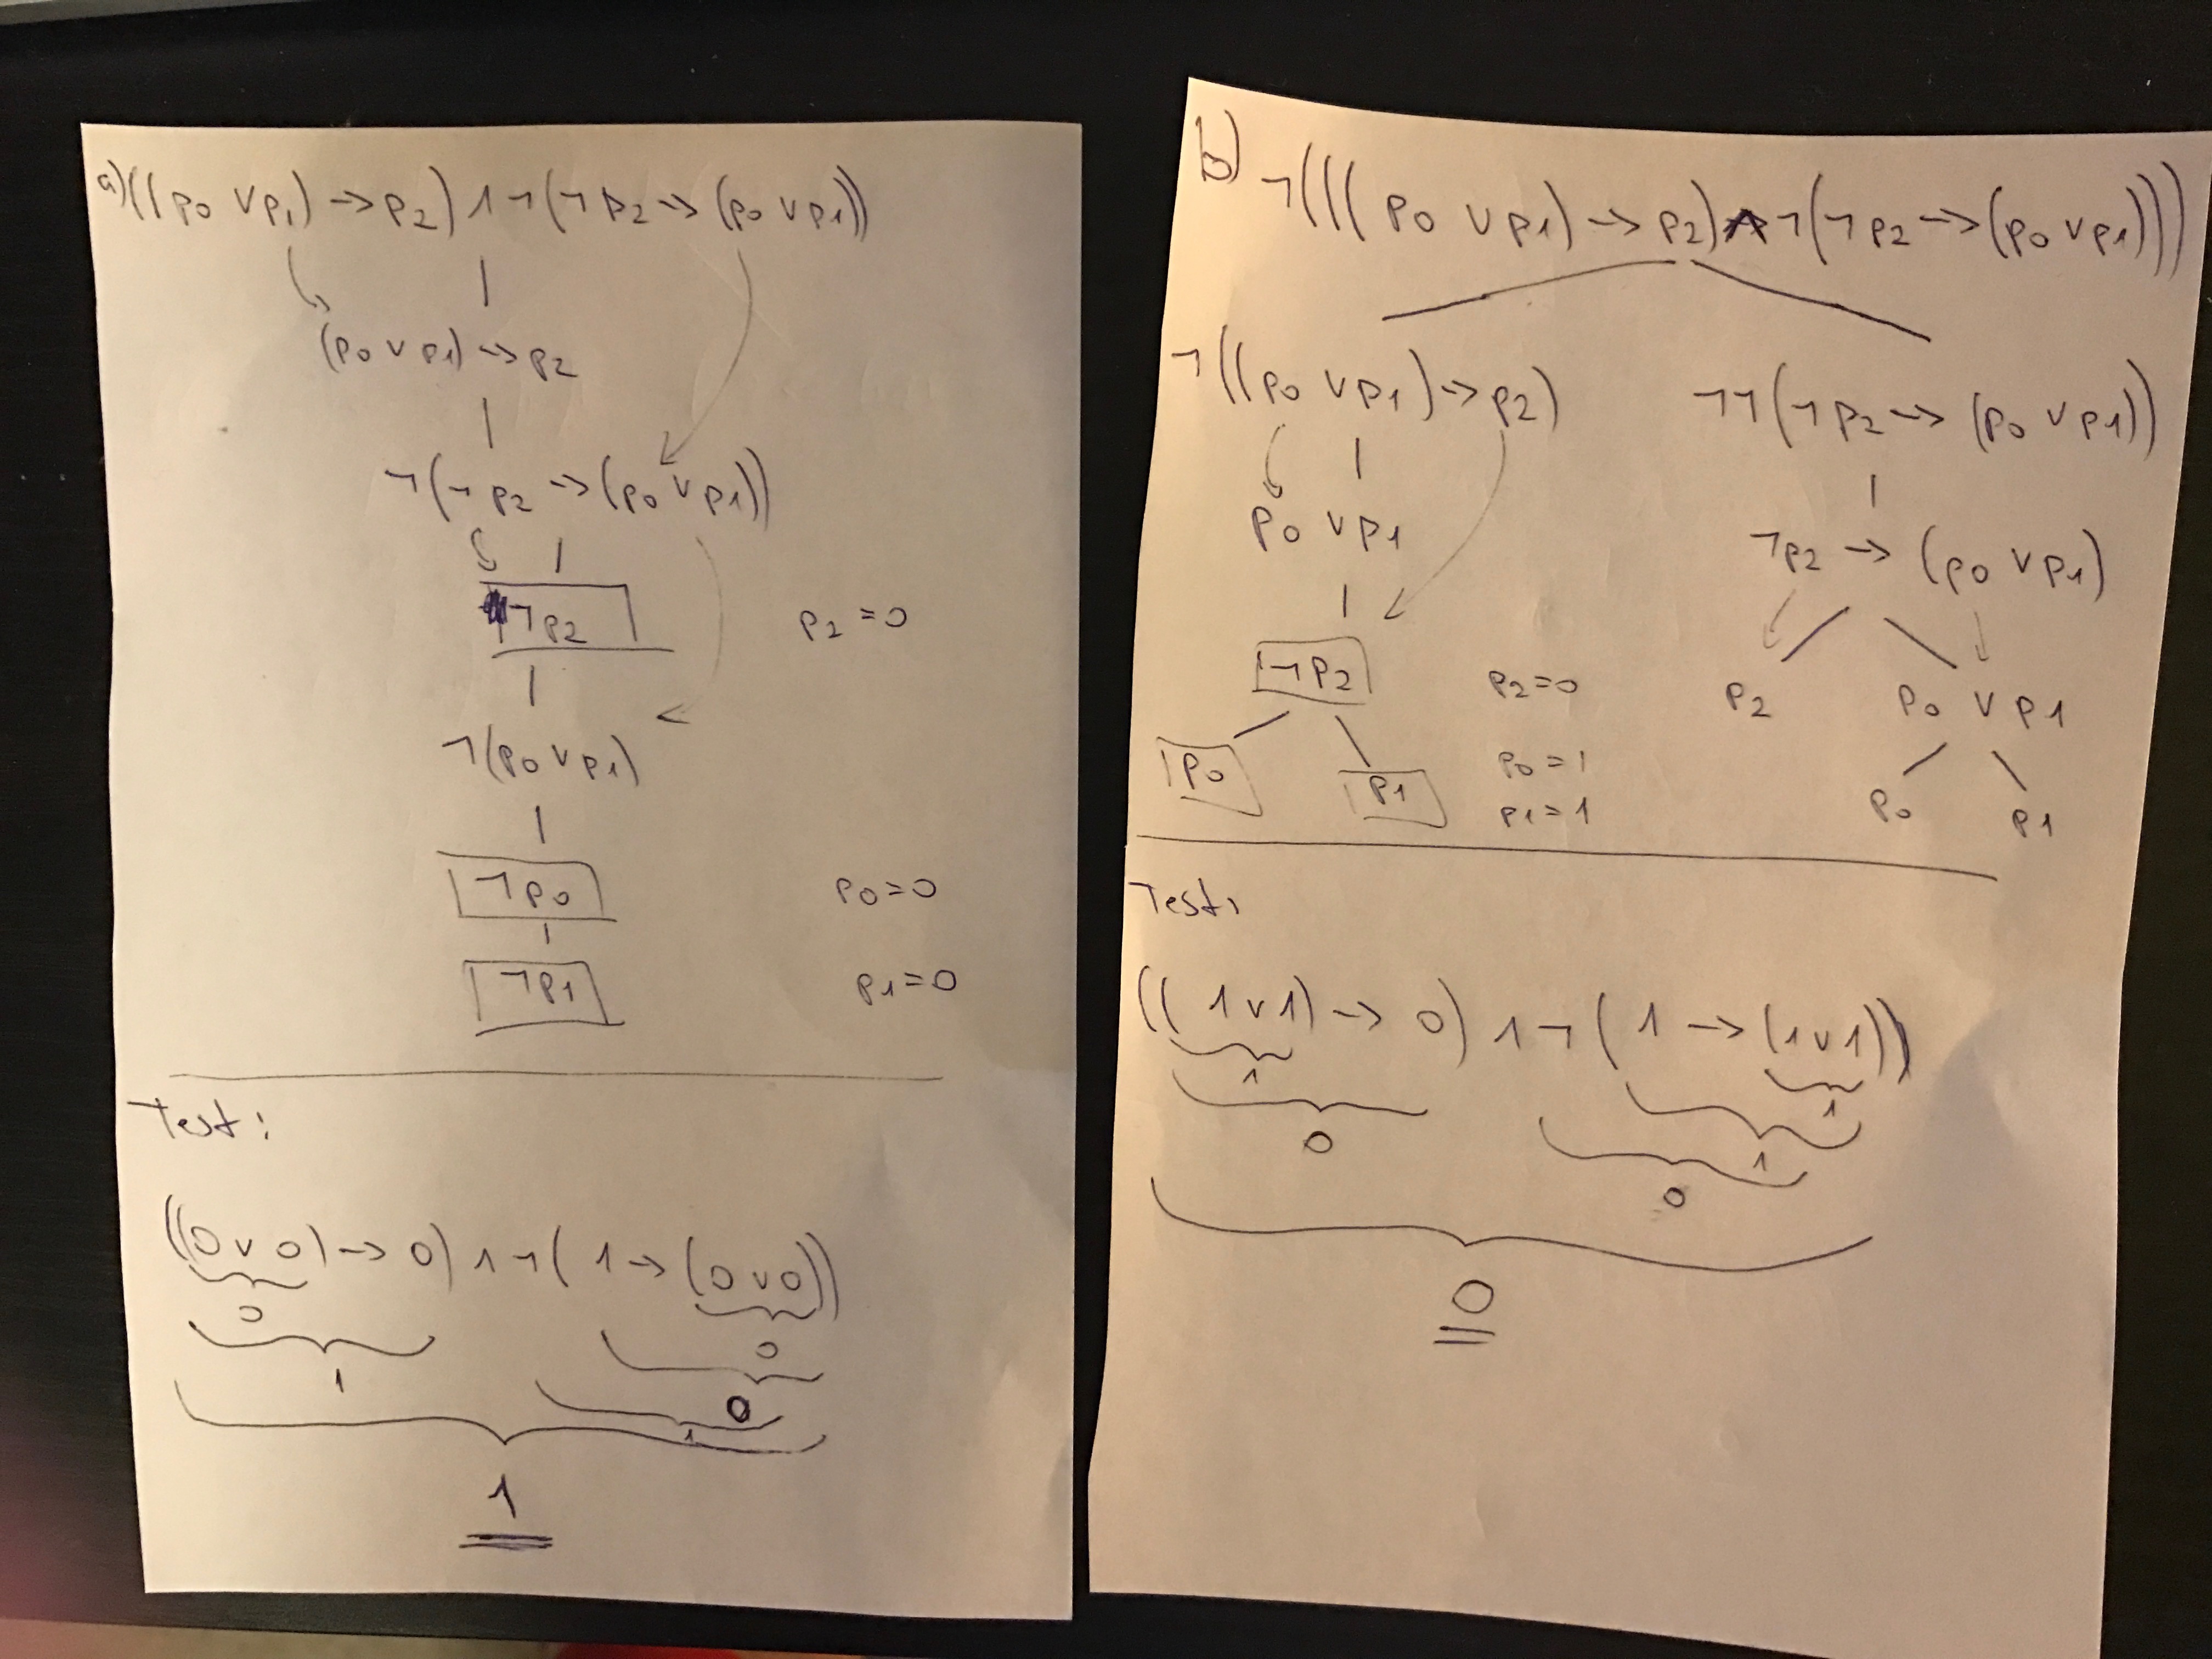 a) ((p0 ∨ p1) → p2) ∧ ¬(¬p2 → (p0 ∨ p1))
(p0 ∨ p1) → p2
¬(¬p2 → (p0 ∨ p1))
¬p2 p2 = 0
¬(p0 ∨ p1)
¬p0 p0 = 0
¬p1 p1 = 0
Test:
((0 ∨ 0) → 0) ∧ ¬(1 → (0 ∨ 0))
0 0
1 0
1
1
b) ¬(((p0 ∨ p1) → p2) ∧ ¬(¬p2 → (p0 ∨ p1)))
¬((p0 ∨ p1) → p2) ¬¬(¬p2 → (p0 ∨ p1))
p0 ∨ p1 ¬p2 → (p0 ∨ p1)
¬p2 p2 = 0 p2 p0 ∨ p1
p0 p1 p0 = 1 p0 p1
p1 = 1
Test:
((1 ∨ 1) → 0) ∧ ¬(1 → (1 ∨ 1))
1 1
0 1
0
0